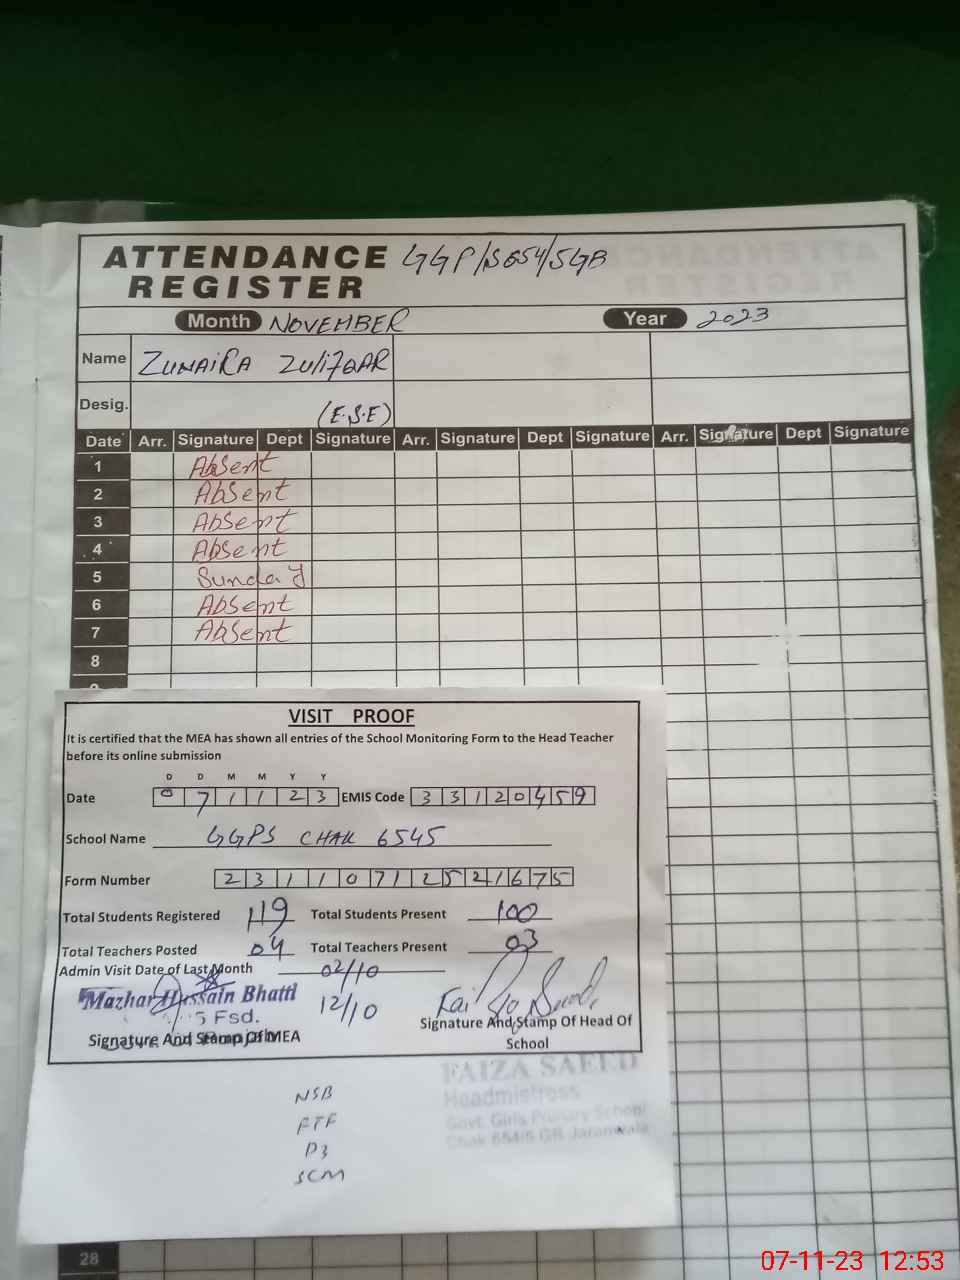 ATTENDANCE REGISTER GGP/S654/5GB
Month NOVEMBER Year 2023
Name ZUNAIRA ZUlifQAR
Desig. (E.S.E)
Date Arr. Signature Dept Signature Arr. Signature Dept Signature Arr. Signature Dept Signature
1 Absent
2 Absent
3 Absent
4 Absent
5 Sunday
6 Absent
7 Absent
8
VISIT PROOF
It is certified that the MEA has shown all entries of the School Monitoring Form to the Head Teacher
before its online submission
D D M M Y Y
Date 0 7 1 1 2 3 EMIS Code 3 3 1 2 0 4 5 9
School Name GGPS CHAK 6545
Form Number 2 3 1 1 0 7 1 2 5 2 1 6 7 5
Total Students Registered 119 Total Students Present 100
Total Teachers Posted 04 Total Teachers Present 03
Admin Visit Date of Last Month 02/10
12/10
Mazhar Hussain Bhatti
Fsd.
Signature And Stamp Of MEA
Signature And Stamp Of Head Of
School
FAIZA SAEED
Headmistress
Govt. Girls Primary School
Chak 654/5 GB Jaranwala
NSB
FTF
P3
SCM
28
07-11-23 12:53